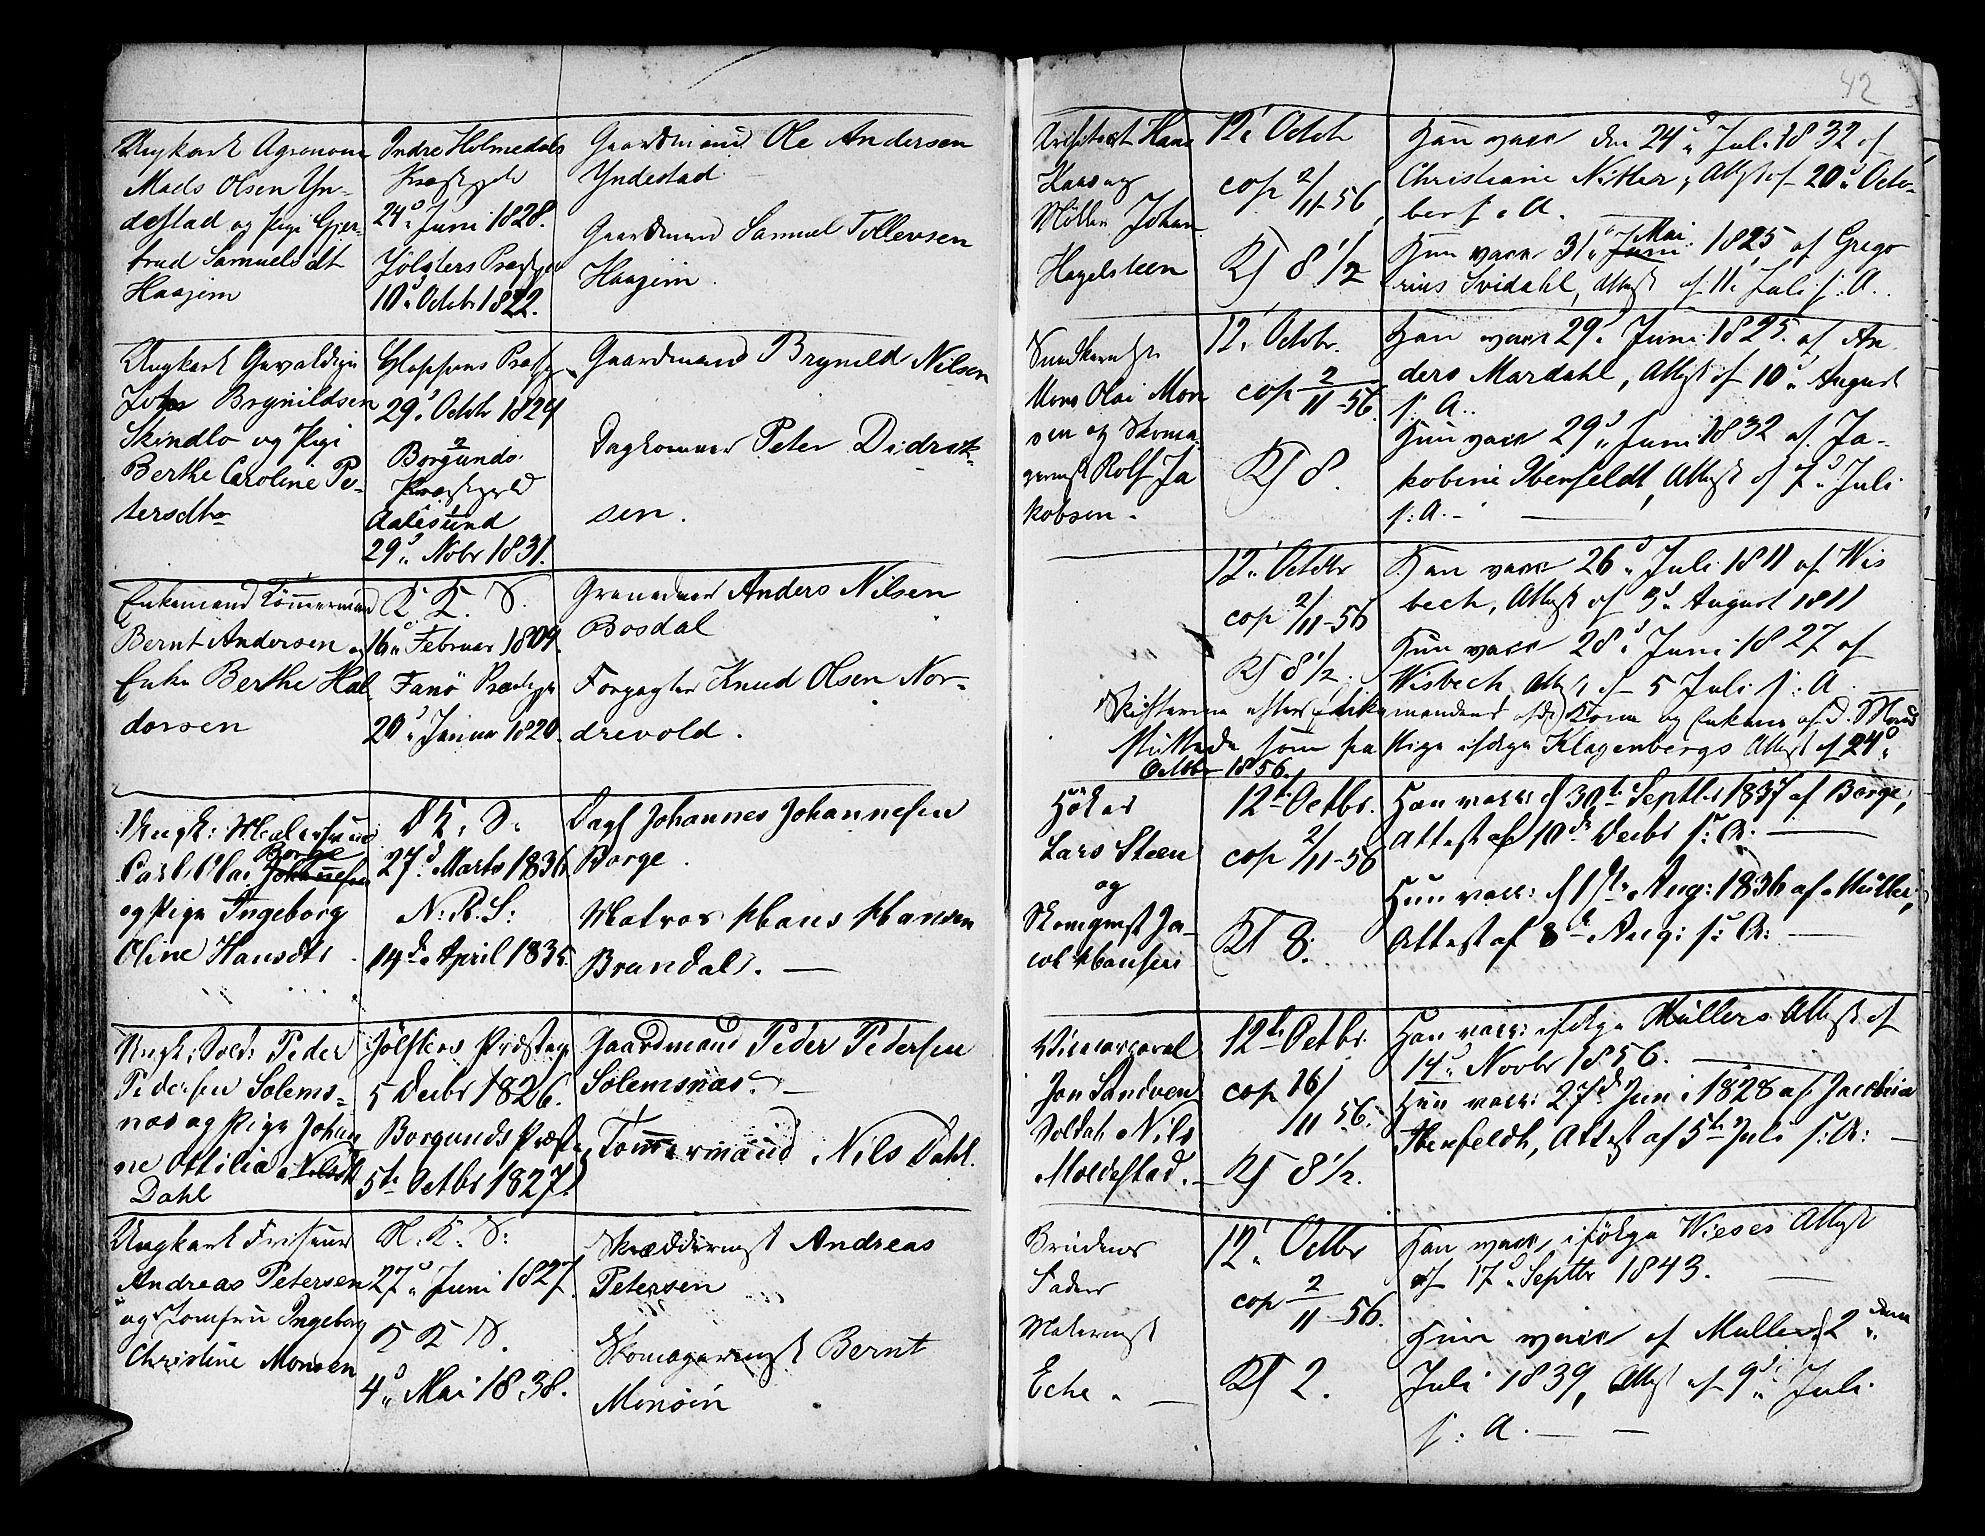 42
Ungkarl Agronom
Mads Olsen Yn-
destad og Pige Gjer-
trud Samuelsdt
Haajem
Indre Holmedals
Præstgjeld
24d Juni 1828.
Jølsters Præstgjeld
10d Octobr 1822.
Gaardmand Ole Andersen
Yndestad
Gaardmand Samuel Tollevsen
Haajem.
Architect Hans
Kaas og
Møller Johan
Hagelsteen
12t Octobr
cop 2/11-56
8 1/2
Han vacc den 24d Juli 1832 af
Christiane Nitter, Attest af 20d Octo-
ber s. A.
Hun vacc 31t Mai Juni 1825 af Grego
rius Svidahl, Attest af 11 Juli s: A.
Ungkarl
Brynildsen
Skindlo og Pige
Berthe Caroline Pe-
tersdtr
Gloppens Præstgj
29d Octobr 1824
Borgunds
Præstgjeld
Aalesund
29d Novbr 1831.
Gaardmand Brynild Nilsen
Peter Didrik-
sen.
Mons Olai Mon
sen og Skoma-
germst Rolf Ja
kobsen.
12t Octobr.
cop 2/11-56
8
Han vacc 29d Juni 1825. af An
ders Mardahl, Attest af 10d August
s: A..
Hun vacc 29d Juni 1832 af Ja-
kobine Ibenfeldt, Attest af 7d Juli
s: A.
Enkemand Tømmermand
Bernt Andersen og
Enke Berthe Hal
dorsen
K. K. S.
16d Februar 1804.
Fanø Præstegj
20d Januar 1820.
Anders Nilsen
Bosdal
Knud Olsen Nor-
drevold.
12t Octobr
cop 2/11-56
8 1/2.
Han vacc 26d Juli 1811 af Wis
bech, Attest af 3d August 1811
Hun vacc 28d Juni 1827 af
Wisbech, Attest af 5 Juli s: A
Skifterne efter Enkemandens afdøde Kone og Enkens afd. Mand
sluttede som fra Pige ifølge Klagenbergs Attest af 24d
October 1856.
Ungk: Malersvend
Carl Olai Borge Johannesen
og Pige Ingeborg
Oline Hansdtr
D K. S.
27d Marts 1836
N: K. S:
14de April 1835.
Dagl Johannes Johannesen
Borge.
Matros Hans Hansen
Brandal.
Høker
Lars Steen
og
Skomgmst Ja-
cob Hansen
12te Octbr.
cop 2/11-56
8.
Han vacc: d 30te Septbr 1837 af Borge,
Attest af 10de Decbr s: A:
Hun vacc: d Aug: 1836 af Müller,
Attest af 8de Aug: s: A:
Ungk: Sold: Peder
Pedersen Solems-
næs og Pige Johan
ne Ottilia Nilsdtr
Dahl
Jølsters Præsteg:
5 Decbr 1826.
Borgunds Præstg
5te Octbr 1827.
Gaardmand Peder Pedersen
Solemsnæs.
Tømmermand Nils Dahl.
Jon Sandven
Soldat Nils
Moldestad.
12te Octbr.
cop 16/11 56.
8 1/2.
Han vacc: ifølge Müllers Attest af
14d Novbr 1856.
Hun vacc: 27d Juni 1828 af Jacobine
Ibenfeldt, Attest af 5te Juli s: A:
Ungkarl Friseur
Andreas Petersen
og Jomfru Ingeborg
Christine Monsen
N: K. S:
27d Juni 1827
K K S.
4d Mai 1838.
Skrædermst Andreas
Petersen
Skomagermst Bernt
Monsen
Brudens
Fader
Malermst
Eche
12t Octbr
cop 2/11-56.
2.
Han vacc, ifølge Wieses Attest
af 17d Septbr 1843.
Hun vacc af Müller d 2den
Juli 1839, Attest af 9d Juli
s: A.